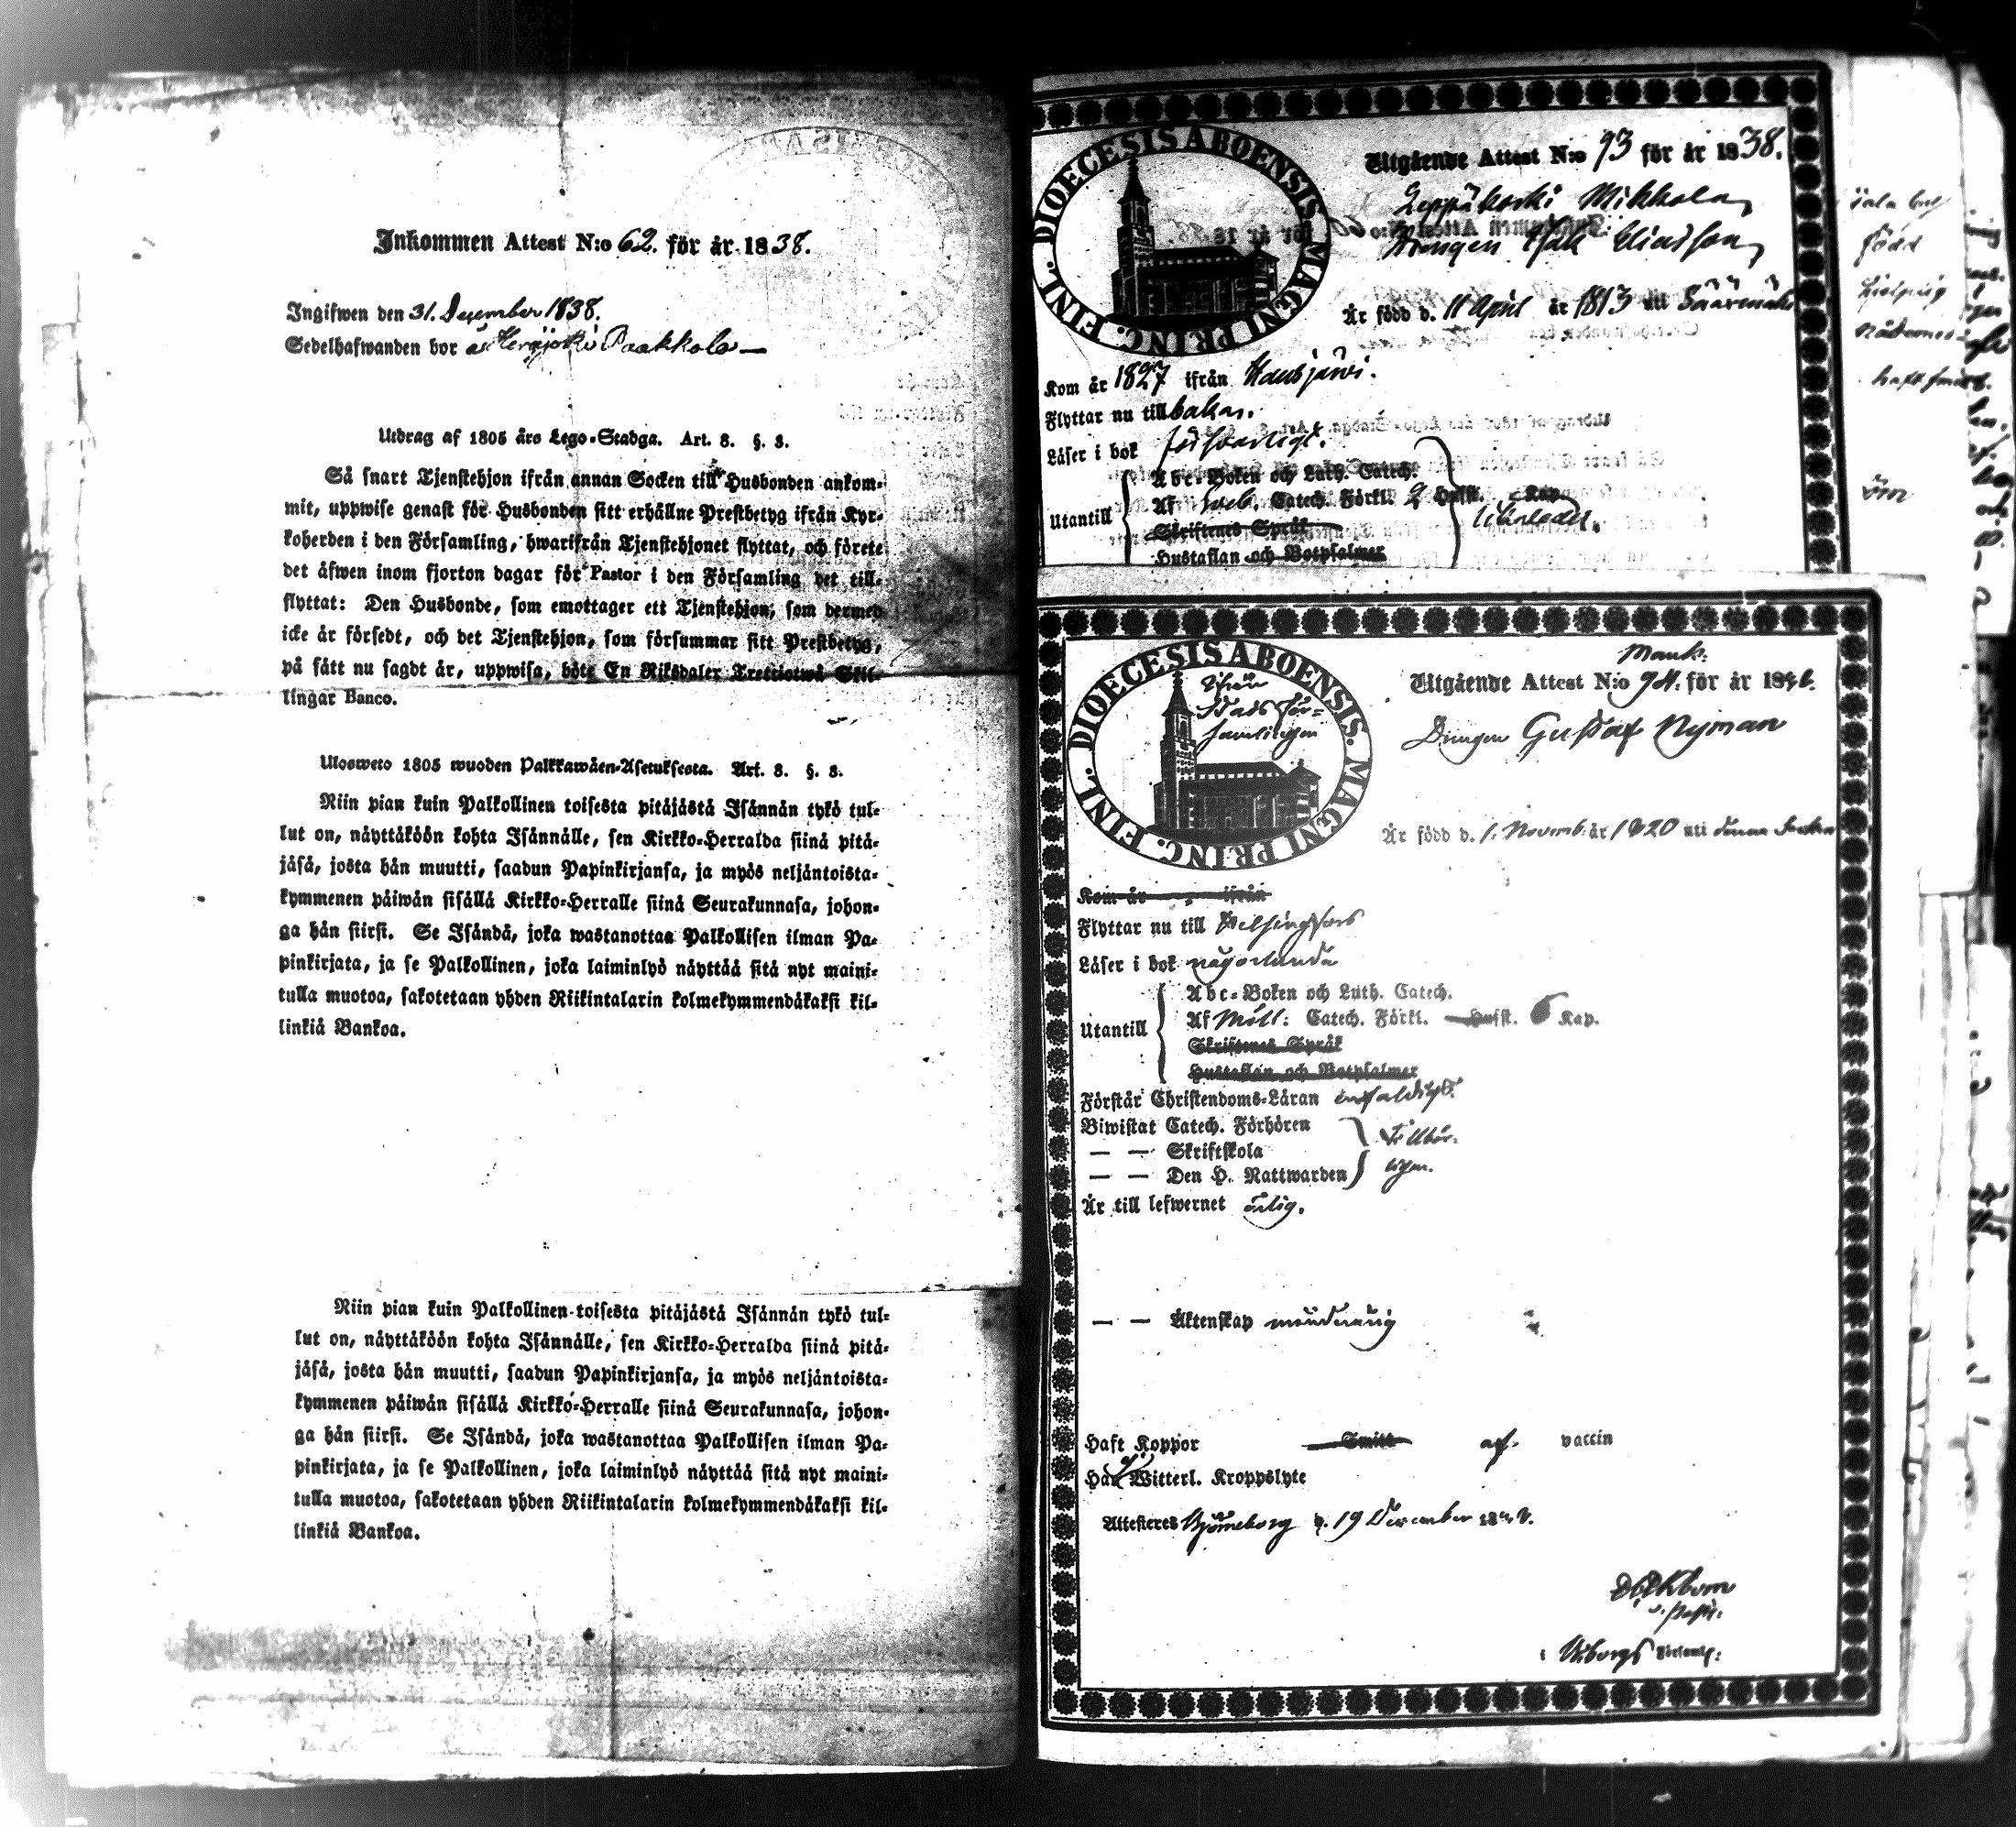 Inkommen Attest N:o 62. för år 1838.
Ingifwen den 31. December 1838.
Sedelhafwanden bor å Herajoki Paakkola
Utdrag af 1805 års Lego-Stadga. Art. 8. §. 3.
Så snart Tjenstehjon ifrån annan Socken till Husbonden ankom-
mit, uppwise genast för Husbonden sitt erhållne Prestbetyg ifrån Kyr-
koherden i den Församling, hwarifrån Tjenstehjonet flyttat, och förete
det äfwen inom fjorton dagar för Pastor i den Församling det till-
flyttat: Den Husbonde, som emottager ett Tjenstehjon, som dermed
icke är försedt, och det Tjenstehjon, som försummar sitt Prestbetyg,
på sätt nu sagdt är, uppwisa, böte En Riksdaler Trettiotwå Skil-
lingar Banco.
Ulosweto 1805 wuoden Palkkawäen-Asetuksesta. Art. 8. §. 3.
Niin pian kuin Palkollinen toisesta pitäjästä Isännän tykö tul-
lut on, näyttäköön kohta Isännälle, sen Kirkko-Herralda siinä pitä-
jäsä, josta hän muutti, saadun Papinkirjansa, ja myös neljäntoista-
kymmenen päiwän sisällä Kirkko-Herralle siinä Seurakunnasa, johon-
ga hän siirsi. Se Isändä, joka wastanottaa Palkollisen ilman Pa-
pinkirjata, ja se Palkollinen, joka laiminlyö näyttää sitä nyt maini-
tulla muotoa, sakotetaan yhden Riikintalarin kolmekymmendäkaksi kil-
linkiä Bankoa.
Niin pian kuin Palkollinen toisesta pitäjästä Isännän tykö tul-
lut on, näyttäköön kohta Isännälle, sen Kirkko-Herralda siinä pitä-
jäsä, josta hän muutti, saadun Papinkirjansa, ja myös neljäntoista-
kymmenen päiwän sisällä Kirkko-Herralle siinä Seurakunnasa, johon-
ga hän siirsi. Se Isändä, joka wastanottaa Palkollisen ilman Pa-
pinkirjata, ja se Palkollinen, joka laiminlyö näyttää sitä nyt maini-
tulla muotoa, sakotetaan yhden Riikintalarin kolmekymmendäkaksi kil-
linkiä Bankoa.
DIOECESIS ABOENSIS. MAGNI PRINC. FINL.
Utgående Attest N:o 93 för år 1838.
Leppäkoski Mikkola
Drengen Isak Eliasson
Är född d. 11 April år 1813 uti
Kom år 1827 ifrån Hausjärwi.
Flyttar nu till bakas.
Läser i bok försvarligt.
Utantill
Abc-Boken och Luth. Catech.
Af Sveb. Catech. Förkl. 9 Hufst. Kap.
Skriftenes Språk
Hustaflan och Botpsalmer
DIOECESIS ABOENSIS. MAGNI PRINC. FINL.
Ifrån
Stads För-
samlingen
Mank:
Utgående Attest N:o 94. för år 1846.
Drengen Gustaf Nyman
Är född d. 1. Novemb. år 1820 uti denna
Kom år ifrån
Flyttar nu till Helsingfors
Läser i bok någorlunda
Utantill
Abc-Boken och Luth. Catech.
Af Möll: Catech. Förkl. Hufst. 6 Kap.
Skriftenes Språk
Hustaflan och Botpsalmer
Förstår Christendoms-Läran enfaldigt.
Biwistat Catech. Förhören
— — Skriftskola
— — Den H. Nattwarden
Är till lefwernet ärlig.
— — Äktenskap minderårig
Haft Koppor Smitt af vaccin
Har Witterl. Kroppslyte
Attesteres Björneborg d. 19 December